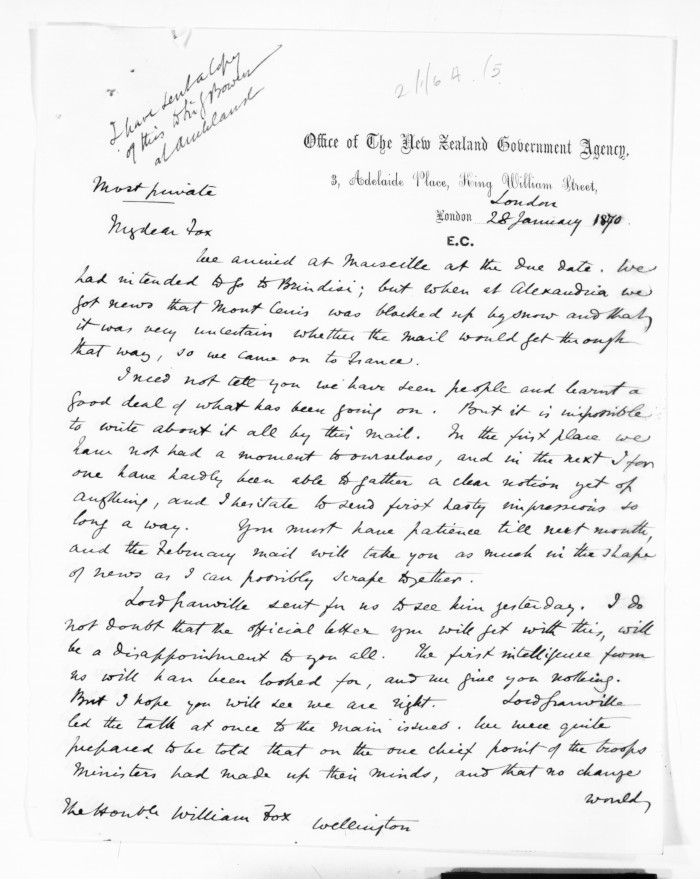 I have sent a Copy
of this to Sir G Bowen
at Auckland
Office of The New Zealand Government Agency,
3, Adelaide Place, King William Street,
London
London 28 January 1870.
E.C.
Most private
My dear Fox
We arrived at Marseille at the due date. We
had intended to go to Brindisi; but when at Alexandria we
got news that Mont Cenis was blocked up by snow and that
it was very uncertain whether the mail would get through
that way, so we came on to France.
I need not tell you we have seen people and learnt a
good deal of what has been going on. But it is impossible
to write about it all by this mail. In the first place we
have not had a moment to ourselves, and in the next I for
one have hardly been able to gather a clear notion yet of
anything, and I hesitate to send first hasty impressions so
long a way. You must have patience till next month,
and the February mail will take you as much in the shape
of news as I can possibly scrape together.
Lord Granville sent for us to see him yesterday. I do
not doubt that the official letter you will get with this, will
be a disappointment to you all. The first intelligence from
us will have been looked for, and we give you nothing.
But I hope you will see we are right. Lord Granville
led the talk at once to the main issues. We were quite
prepared to be told that on the one chief point of the troops
Ministers had made up their minds, and that no change
would
The Honble William Fox
Wellington